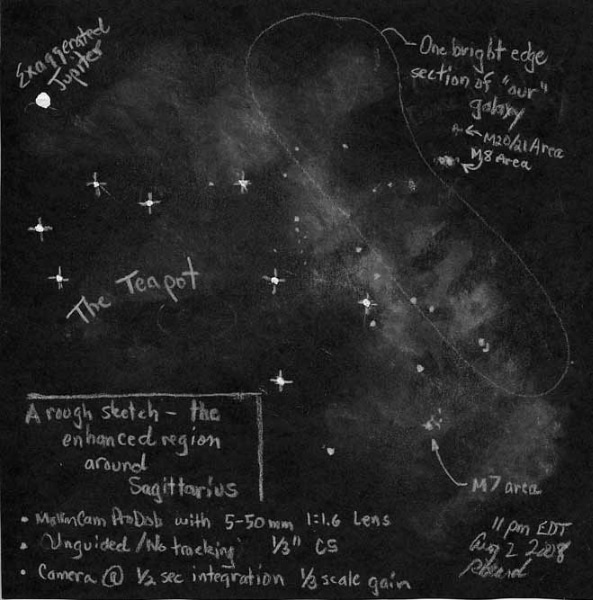 Exaggerated
Jupiter
One bright edge
section of "our"
galaxy
M20/21 Area
M8 Area
The Teapot
A rough sketch – the
enhanced region
around
Sagittarius
M7 area
• MallinCam ProDob with 5-50mm 1:1.6 Lens
• Unguided/No tracking 1/3" CS
• Camera @ 1/2 sec integration 1/3 scale gain
11 pm EDT
Aug 2 2008